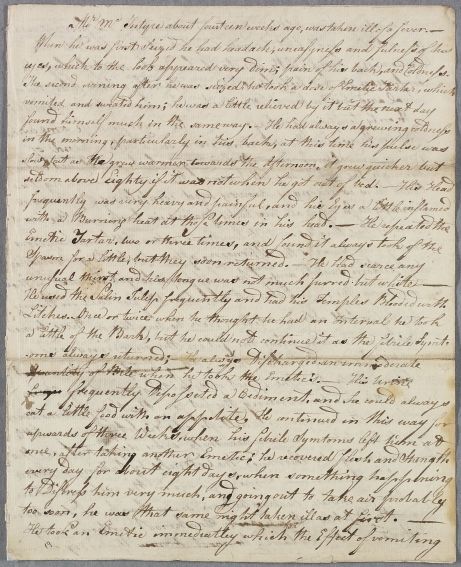 Thos. Mc. Intyre about fourteen weeks ago, was taken ill of a fever. —
When he was first seized he had headach, uneassyness and fulness of his
eyes, which to the look appeared very dim; pain of his back, and coldness.
The second evening after he was seized he took a dose of Emetic Tartar, which
vomited and sweated him; he was a little relieved by it but the next day
found himself much in the same way. — He had always a grewing coldness
in the morning, particularly in his back, at this time his pulse was
slow, but as He grew warmer towards the afternoon it grew quicker but
seldom above eighty if it was not when he got out of bed. — His Head
frequently was very heavy and painful, and his Eyes a little inflamed
with a Burning heat at those times in his head. — He repeated the
Emetic Tartar, two or three times, and found it always took of the
Spasm for a little, but they soon returned. — He had scarce any
unusual thirst, and his tongue was not much furred but white. —
He used the Salin Julep frequently and had his Temples Blooded with
Litches. Once or twice when he thought he had an interval he took
a little of the Bark, but he could not continue it as the febrile Symt-
oms always returned; he always Discharged an immoderate
Quantity of Bile when he took the Emetics. — His Urine
frequently Deposseted a Cediment, and he could always
eat a little food with an appetite, He continued in this way for
upwards of three Weeks, when his febrile Symtoms left him at
once, after taking another Emetic; he recovered flesh and Strength
every day for about eight days, when something happening
to Distress him very much, and going out to take air probably
too soon, he was that same night taken ill as at first. —
He took an Emetic immediatley which the Effect of vomiting